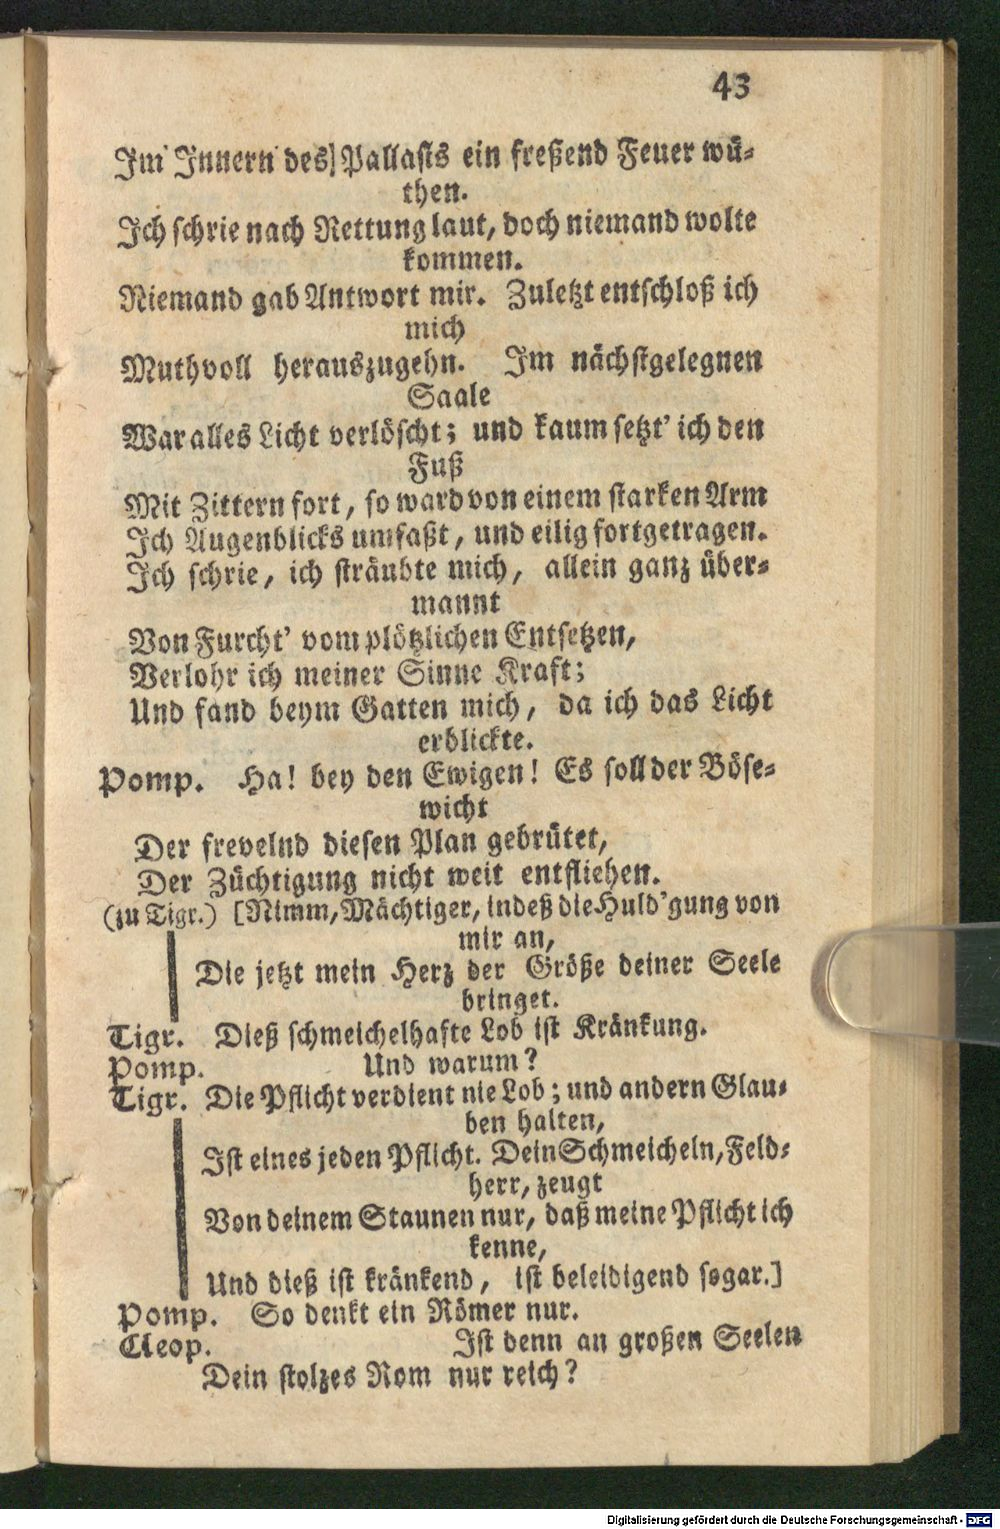 43
Im Innern des] Pallasts ein freßend Feuer wü-
then.
Ich schrie nach Rettung laut, doch niemand wolte
kommen.
Niemand gab Antwort mir. Zuletzt entschloß ich
mich
Muthvoll herauszugehn. Im nächstgelegnen
Saale
War alles Licht verlöscht; und kaum setzt' ich den
Fuß
Mit Zittern fort, so ward von einem starken Arm
Ich Augenblicks umfaßt, und eilig fortgetragen.
Ich schrie, ich sträubte mich, allein ganz über-
mannt
Von Furcht' vom plötzlichen Entsetzen,
Verlohr ich meiner Sinne Kraft;
Und fand beym Gatten mich, da ich das Licht
erblickte.
Pomp. Ha! bey den Ewigen! Es soll der Böse-
wicht
Der frevelnd diesen Plan gebrütet,
Der Züchtigung nicht weit entfliehen.
(zu Tigr.) [Nimm, Mächtiger, indeß die Huld'gung von
mir an,
Die jetzt mein Herz der Größe deiner Seele
bringet.
Tigr. Dieß schmeichelhafte Lob ist Kränkung.
Pomp. Und warum?
Tigr. Die Pflicht verdient nie Lob; und andern Glau-
ben halten,
Ist eines jeden Pflicht. Dein Schmeicheln, Feld-
herr, zeugt
Von deinem Staunen nur, daß meine Pflicht ich
kenne,
Und dieß ist kränkend, ist beleidigend sogar.]
Pomp. So denkt ein Römer nur.
Cleop. Ist denn an großen Seelen
Dein stolzes Rom nur reich?
Digitalisierung gefördert durch die Deutsche Forschungsgemeinschaft - DFG